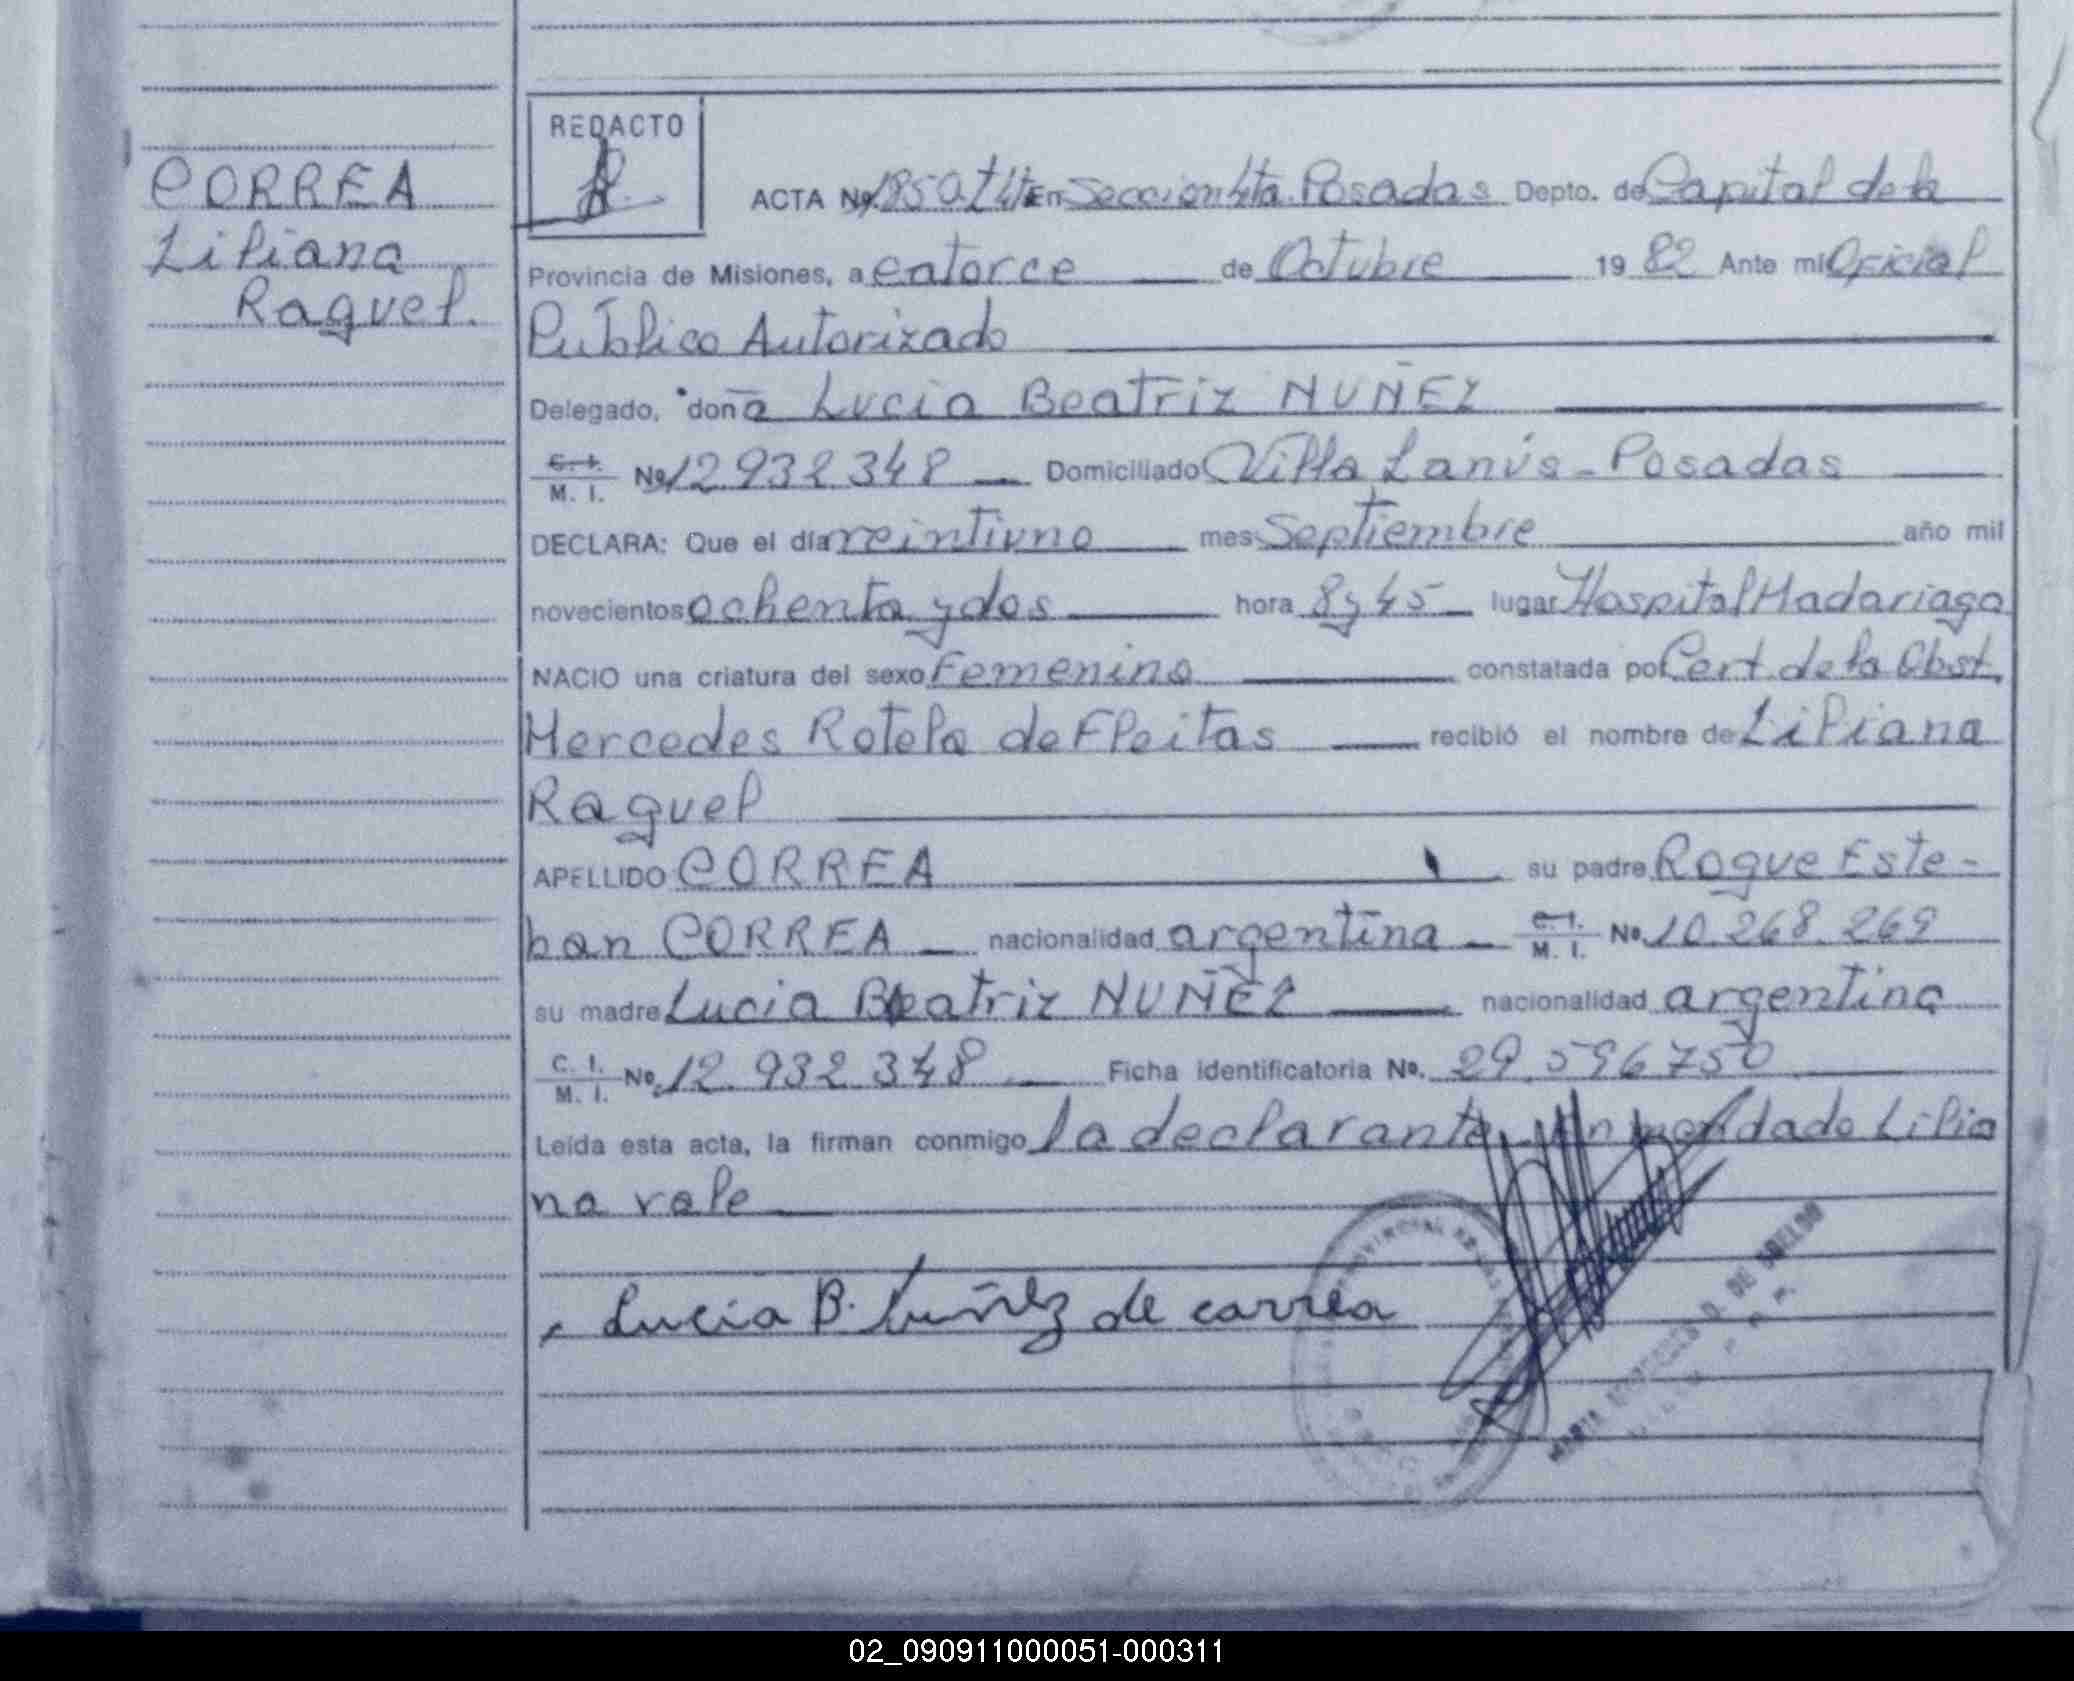 CORREA
Liliana
Raquel.
REDACTO
ACTA Nº 1850 En Seccion 4ta. Posadas Depto. de Capital de la
Provincia de Misiones, a catorce de Octubre 19 82 Ante mi Oficial
Público Autorizado
Delegado, doña Lucia Beatriz NUÑEZ
C. I. / M. I. Nº 12.932.348 Domiciliado Villa Lanús - Posadas
DECLARA: Que el día veintiuno mes Septiembre año mil
novecientos ochenta y dos hora 8 y 45 lugar Hospital Madariaga
NACIO una criatura del sexo Femenino constatada por Cert. de la Obst.
Mercedes Rotela de Fleitas recibió el nombre de Liliana
Raquel
APELLIDO CORREA su padre Roque Este-
ban CORREA nacionalidad argentina C. I. / M. I. Nº 10.268.269
su madre Lucia Beatriz NUÑEZ nacionalidad argentina
C. I. / M. I. Nº 12.932.348 Ficha identificatoria Nº. 29.596750
Leída esta acta, la firman conmigo la declarante, Enmendado Lilia
na vale
Lucia B. Nuñez de correa
02_090911000051-000311